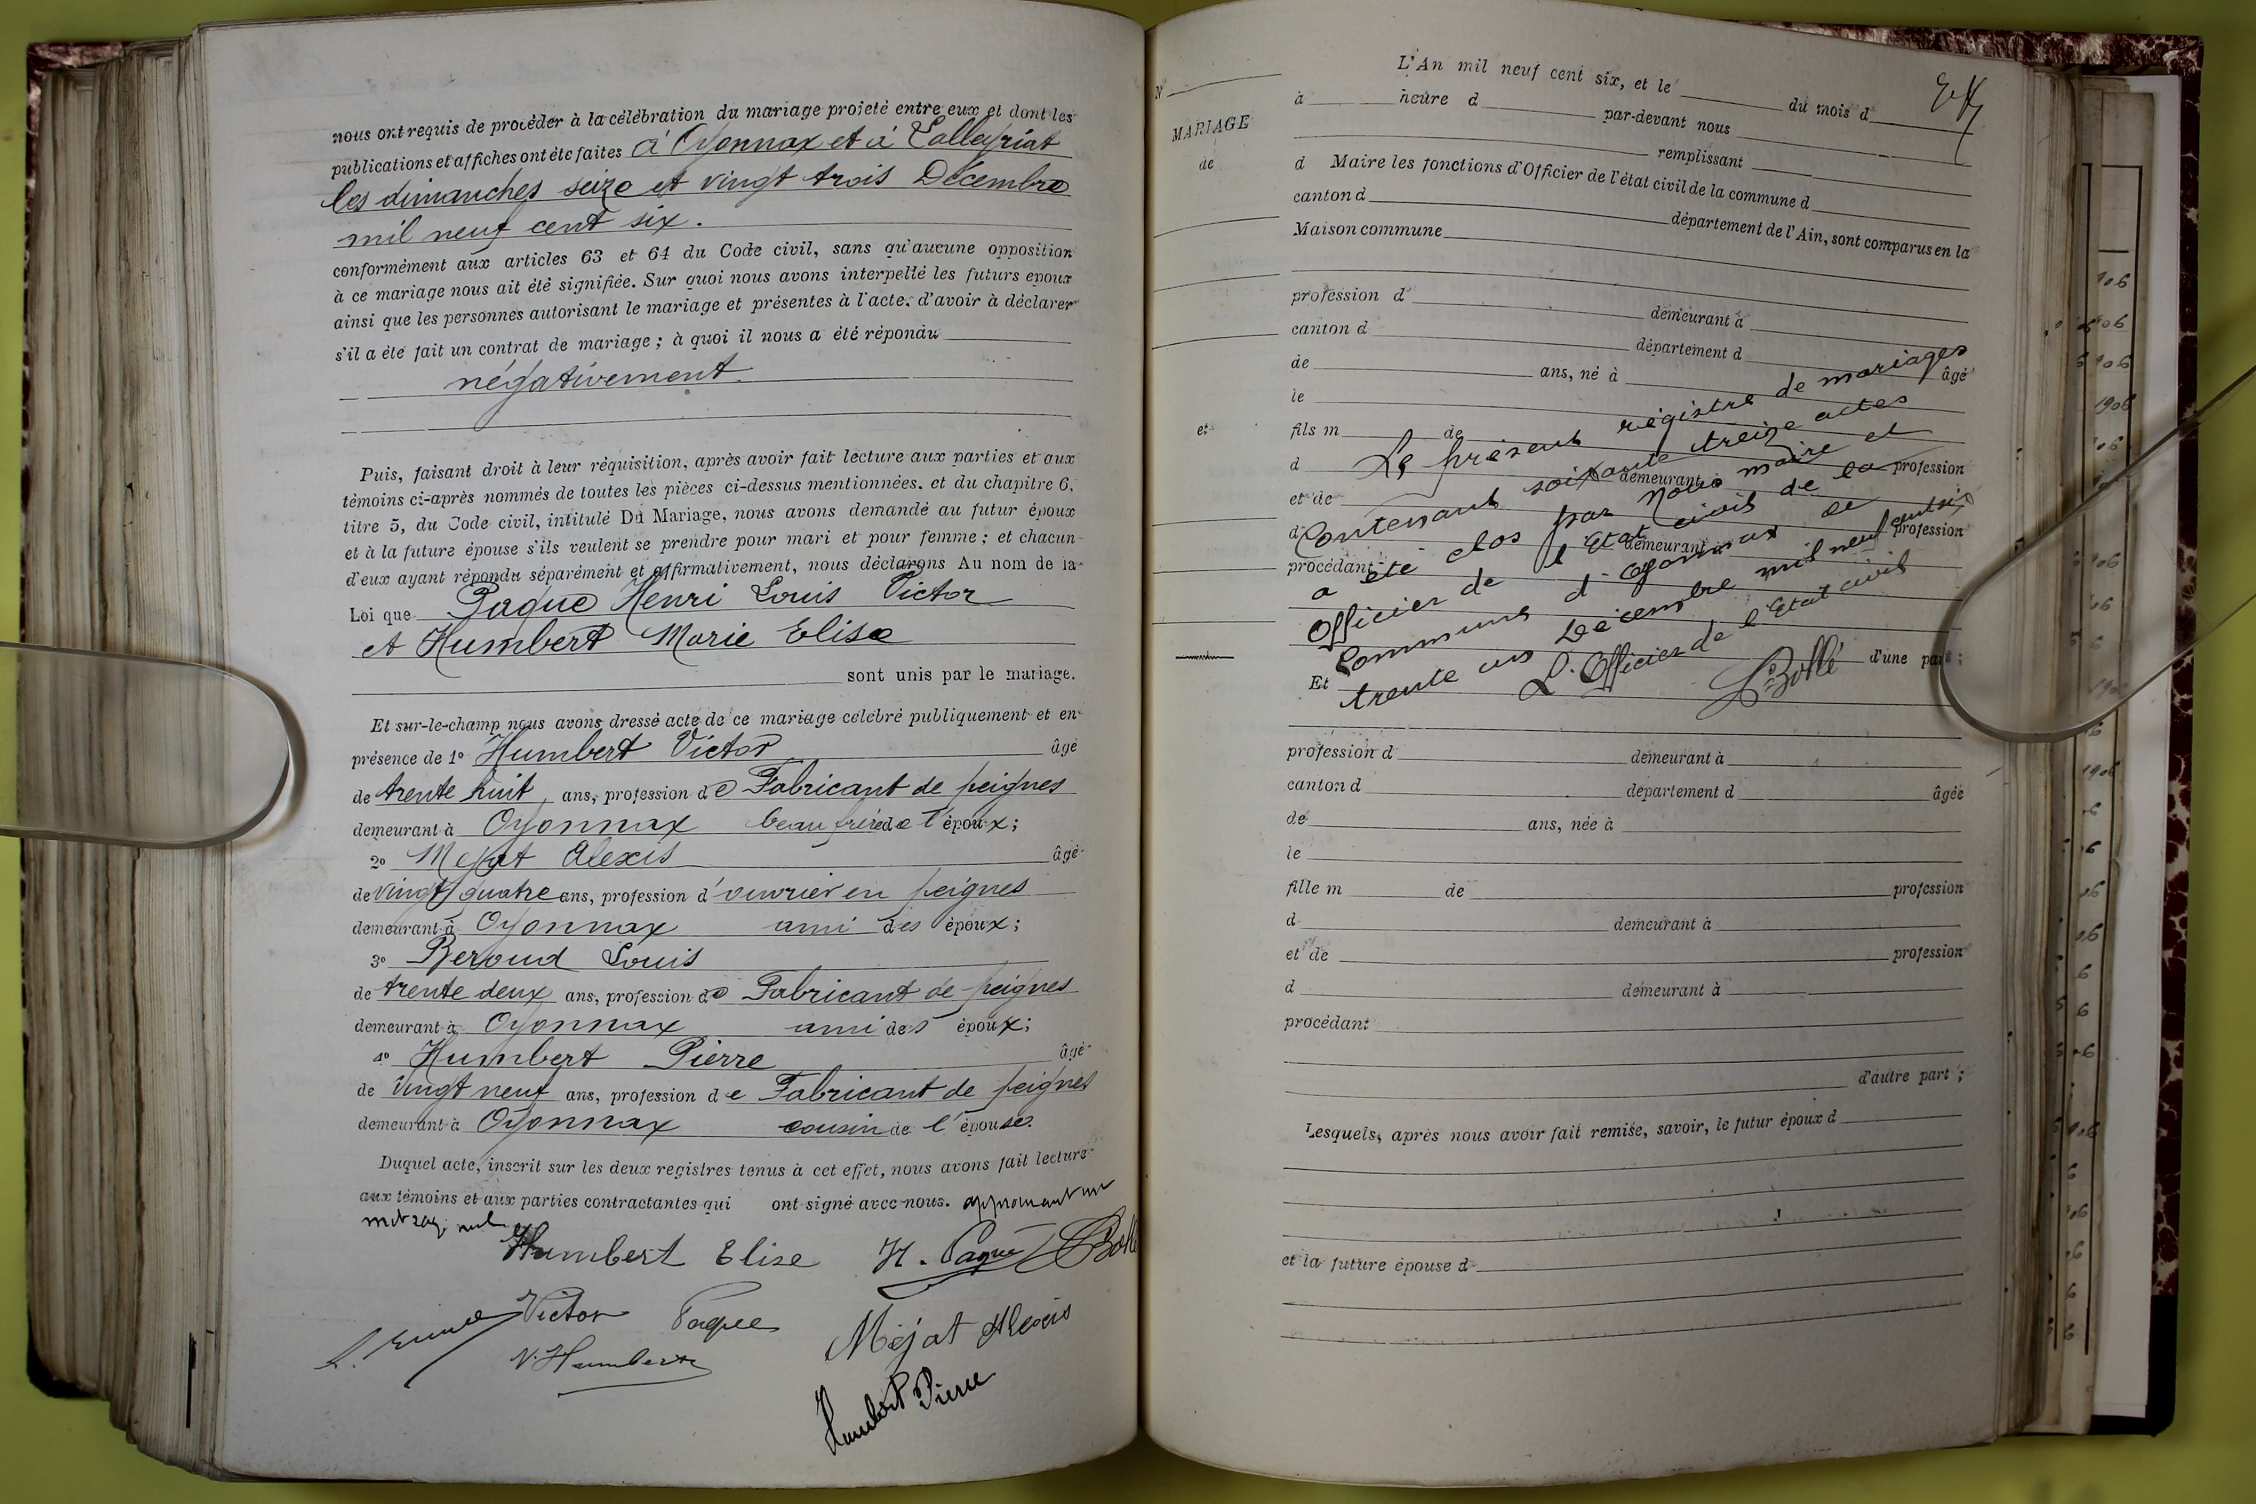 nous ont requis de procéder à la célébration du mariage projeté entre eux et dont les
publications et affiches ont été faites à Oyonnax et à Lalleyriat
les dimanches seize et vingt trois Décembre
mil neuf cent six.
conformément aux articles 63 et 64 du Code civil, sans qu'aucune opposition
à ce mariage nous ait été signifiée. Sur quoi nous avons interpellé les futurs époux
ainsi que les personnes autorisant le mariage et présentes à l'acte, d'avoir à déclarer
s'il a été fait un contrat de mariage ; à quoi il nous a été répondu
négativement.
Puis, faisant droit à leur réquisition, après avoir fait lecture aux parties et aux
témoins ci-après nommés de toutes les pièces ci-dessus mentionnées, et du chapitre 6,
titre 5, du Code civil, intitulé Du Mariage, nous avons demandé au futur époux
et à la future épouse s'ils veulent se prendre pour mari et pour femme ; et chacun
d'eux ayant répondu séparément et affirmativement, nous déclarons Au nom de la
Loi que Paque Henri Louis Victor
et Humbert Marie Elise
sont unis par le mariage.
Et sur-le-champ nous avons dressé acte de ce mariage célébré publiquement et en
présence de 1° Humbert Victor âgé
de trente huit ans, profession de Fabricant de peignes
demeurant à Oyonnax beau frère de l'époux ;
2° Mejat Alexis âgé
de vingt quatre ans, profession d'ouvrier en peignes
demeurant à Oyonnax ami des époux ;
3° Beroud Louis
de trente deux ans, profession de Fabricant de peignes
demeurant à Oyonnax ami des époux ;
4° Humbert Pierre âgé
de vingt neuf ans, profession de Fabricant de peignes
demeurant à Oyonnax cousin de l'épouse.
Duquel acte, inscrit sur les deux registres tenus à cet effet, nous avons fait lecture
aux témoins et aux parties contractantes qui ont signé avec nous. approuvant un
mot rayé nul
Humbert Elise H. Paque Bollé
Victor Paque Méjat Alexis
V. Humbert
Humbert Pierre
L'An mil neuf cent six, et le du mois d
à heure d par-devant nous
remplissant
MARIAGE
de
et
N°
d Maire les fonctions d'Officier de l'état civil de la commune d
canton d département de l'Ain, sont comparus en la
Maison commune
profession d demeurant à
canton d département d
de ans, né à âgé
le
fils m de
d demeurant profession
et de
d demeurant profession
procédant
d'une part ;
Et
Le présent régistre de mariages
Contenant soixante treize actes
a été clos par Nous maire et
Officier de l'Etat civil de la
Commune d'Oyonnax le
trente un Décembre mil neuf cent six
L'Officier de l'Etat civil
Bollé
profession d demeurant à
canton d département d âgée
de ans, née à
le
fille m de profession
d demeurant à
et de profession
d demeurant à
procédant
d'autre part ;
Lesquels, après nous avoir fait remise, savoir, le futur époux d
et la future épouse d